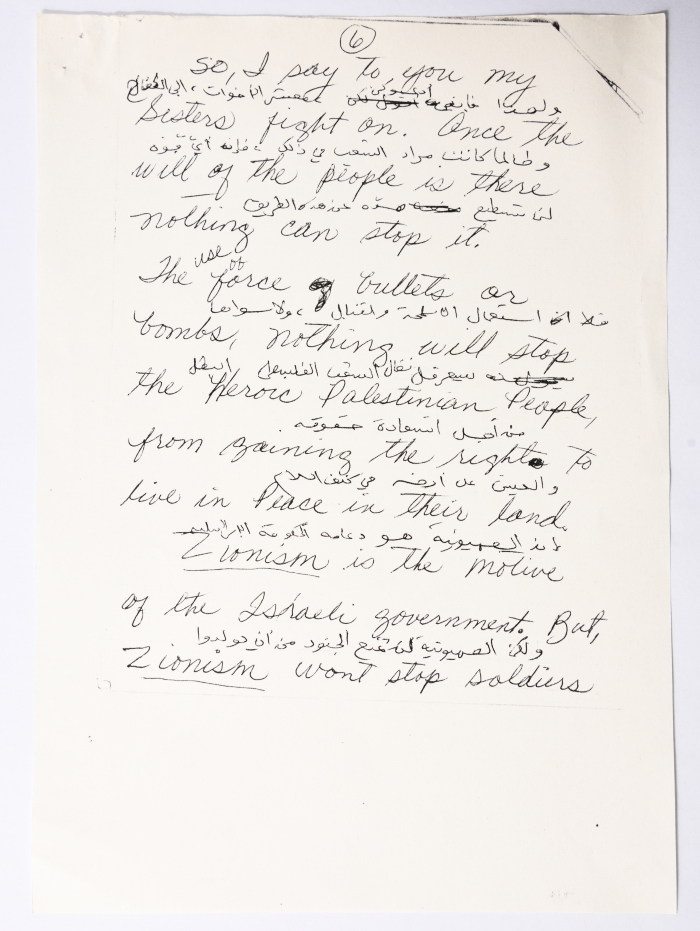 6
So, I say to you my
ولهذا فإنني معشر الأخوات، إلى الكفاح
Sisters fight on. Once the
وطالما كانت مراد الشعب في ذلك، فإنه أي قوة
will of the people is there
لن تستطيع صده عن هذه الطريق
nothing can stop it.
The use of force of bullets or
استعمال الاسلحة والقنابل، ولا سواها
bombs, nothing will stop
سيعرقل نضال الشعب الفلسطيني البطل
the Heroic Palestinian People,
من أجل استعادة حقوقه
from gaining the right to
والعيش على أرضه في كنف السلام
live in Peace in their land.
لأن الصهيونية هو دعامة الحكومة الإسرائيلية
Zionism is the motive
of the Israeli government. But,
ولكن الصهيونية لن تمنع الجنود من أن
Zionism wont stop soldiers